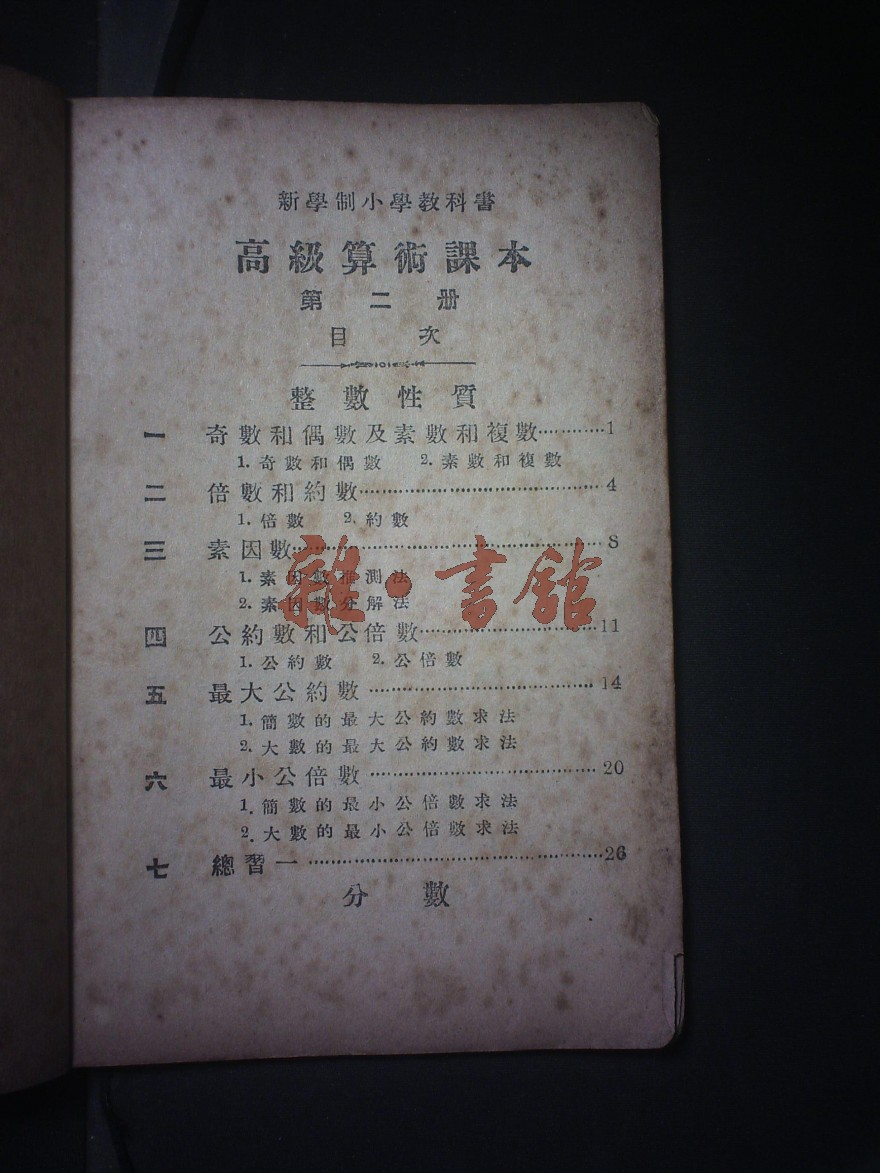 新學制小學教科書
高級算術課本
第二册
目次
整數性質
一 奇數和偶數及素數和複數…………1
1. 奇數和偶數 2. 素數和複數
二 倍數和約數…………4
1. 倍數 2. 約數
三 素因數…………8
1. 素因數推測法
2. 素因數分解法
雜·書館
四 公約數和公倍數…………11
1. 公約數 2. 公倍數
五 最大公約數…………14
1. 簡數的最大公約數求法
2. 大數的最大公約數求法
六 最小公倍數…………20
1. 簡數的最小公倍數求法
2. 大數的最小公倍數求法
七 總習一…………26
分數